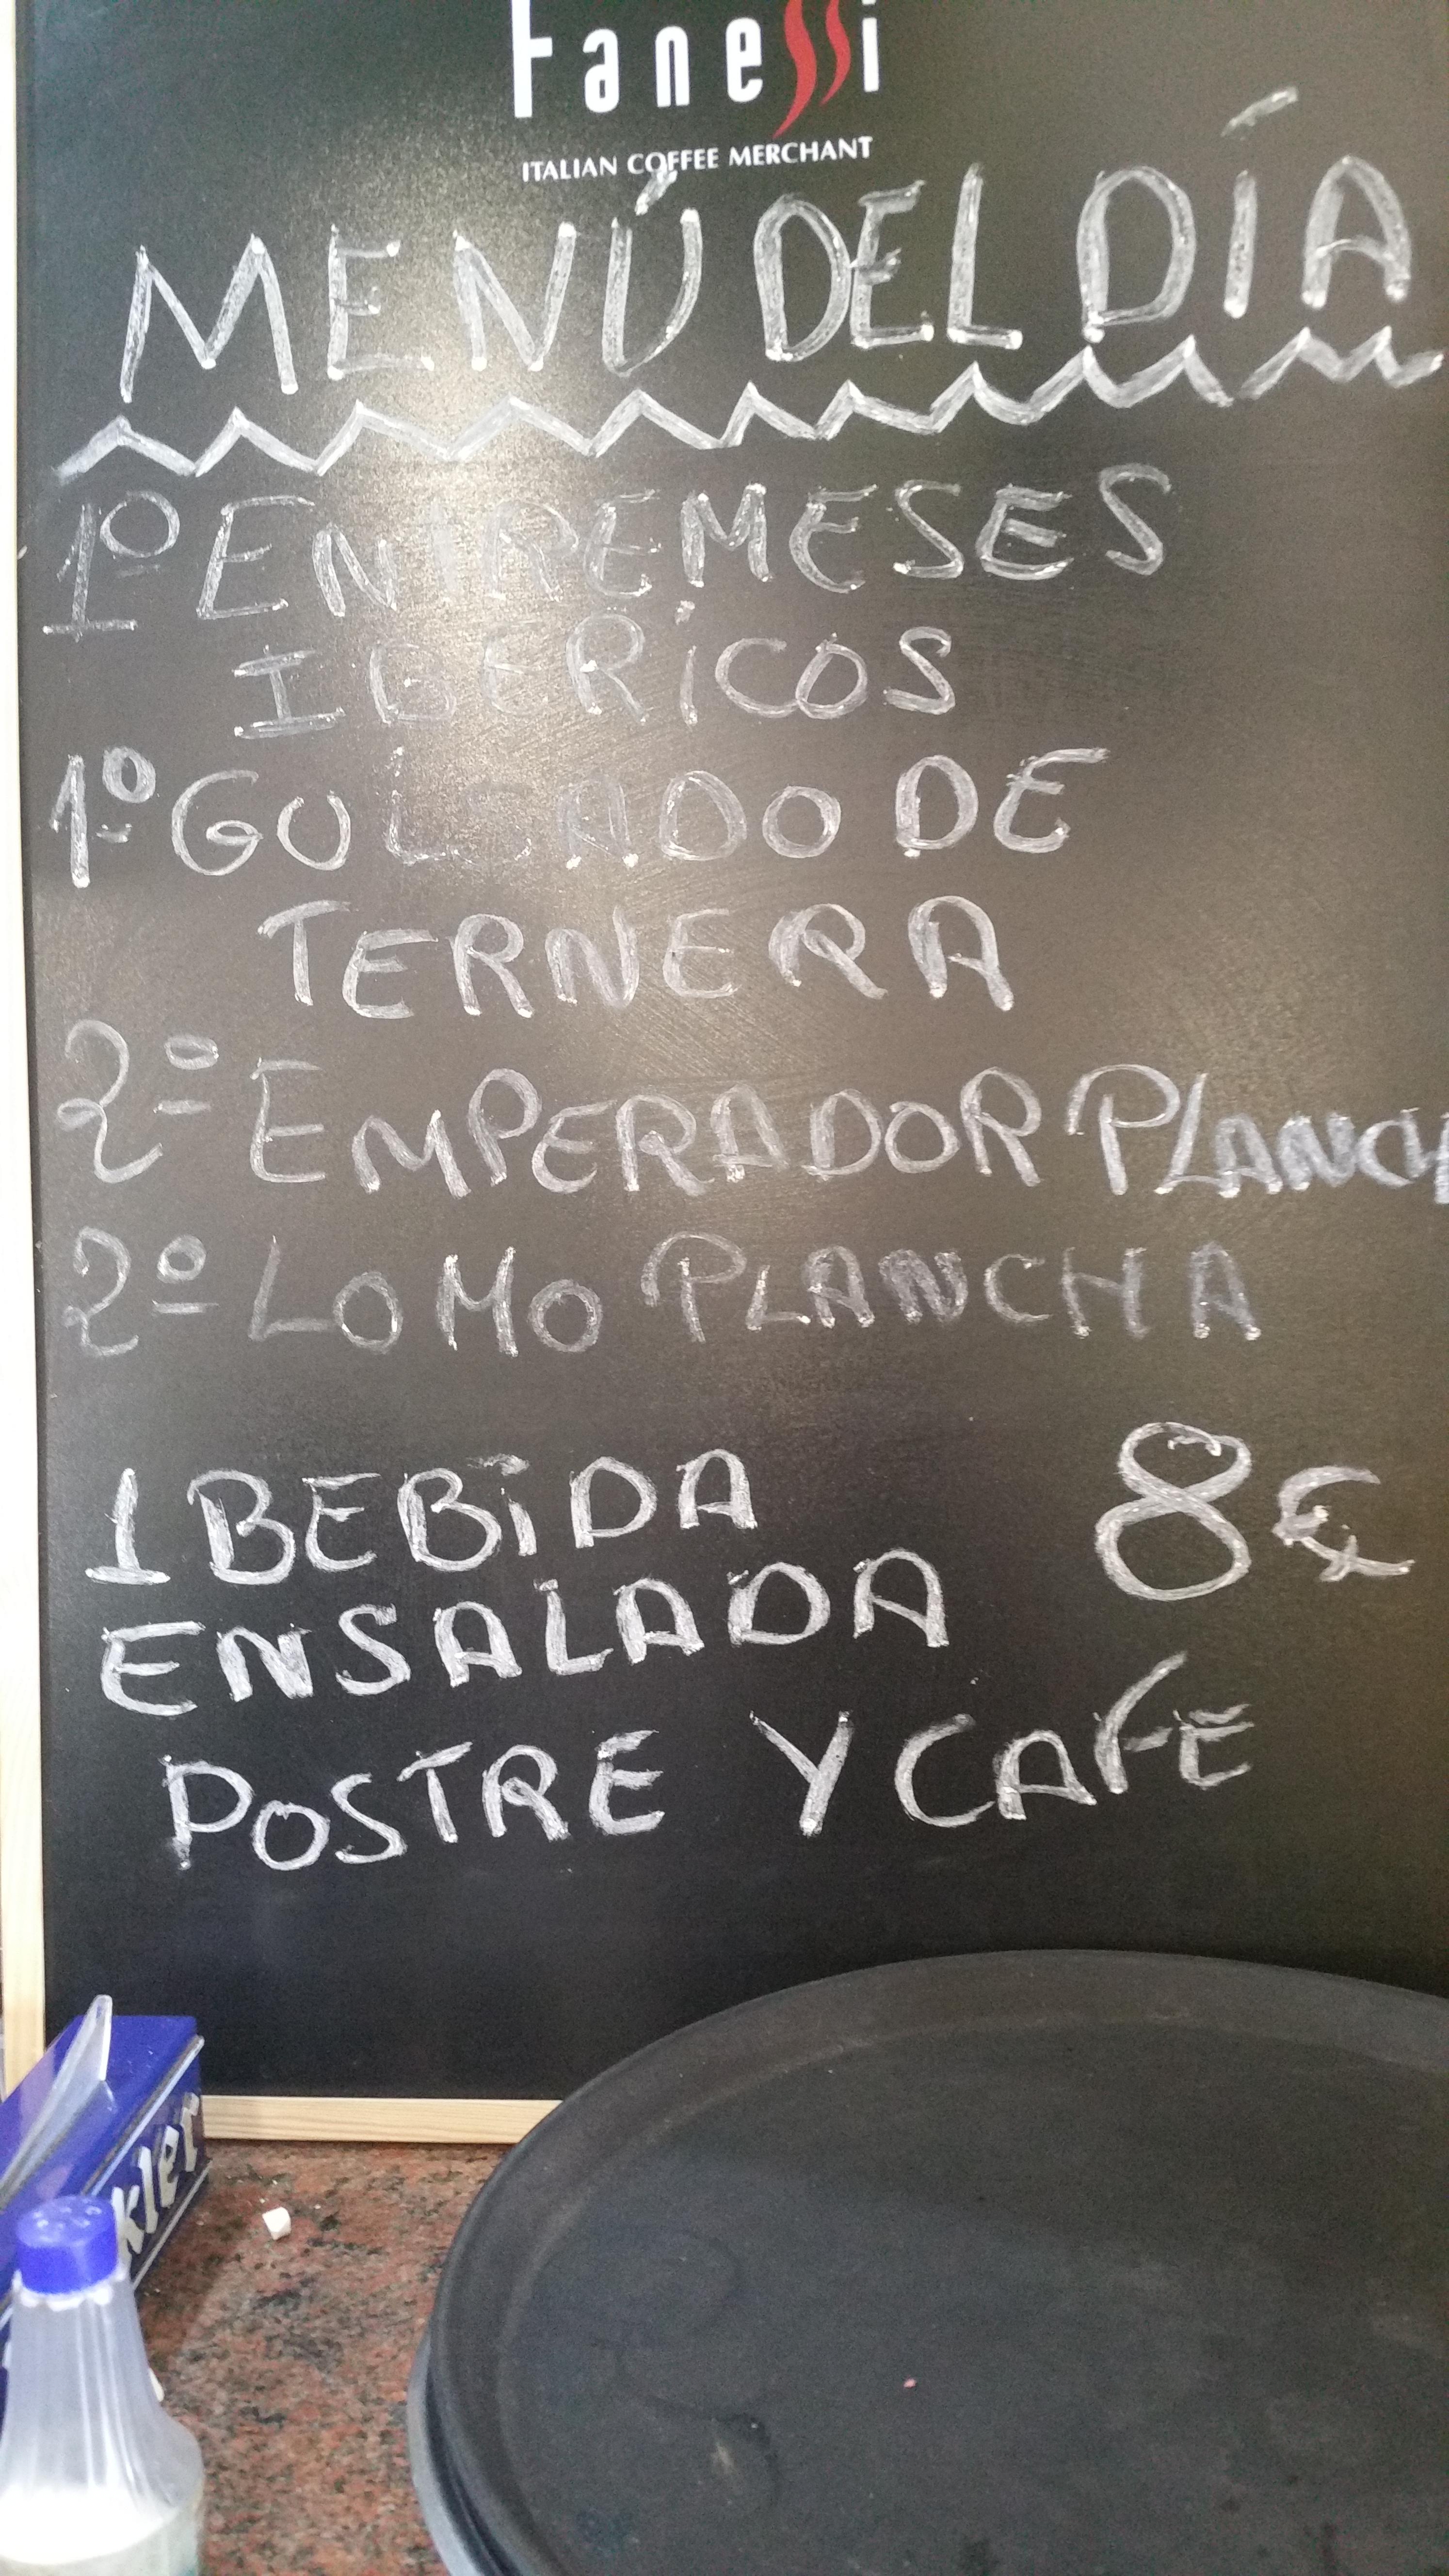 Fanessi
ITALIAN COFFEE MERCHANT
MENÚ DEL DÍA
1º ENTREMESES
IBERICOS
1º GUISADO DE
TERNERA
2º EMPERADOR PLANCH
2º LOMO PLANCHA
1 BEBIDA 8€
ENSALADA
POSTRE Y CAFE
kler